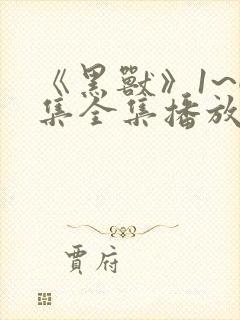 《黑獸》1~
集全集播放
賈府